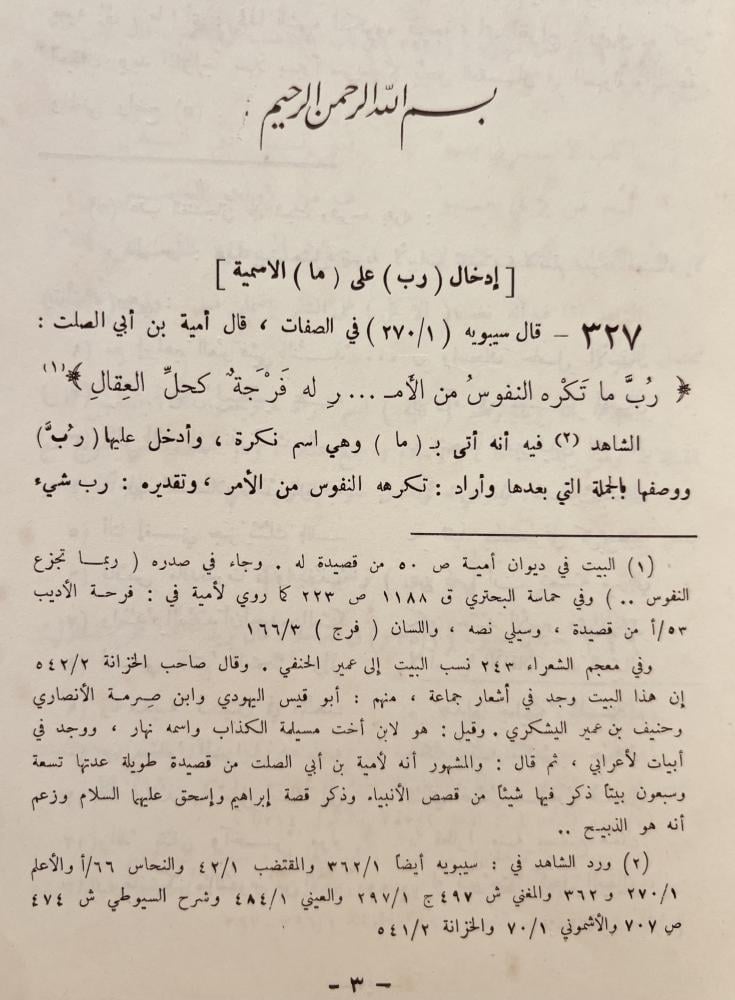 بسم الله الرحمن الرحيم
[ إدخال ( رب ) على ( ما ) الاسمية ]
٣٢٧ – قال سيبويه ( ١/٢٧٠ ) في الصفات ، قال أمية بن أبي الصلت :
﴿ رُبَّ ما تَكْره النفوسُ من الأَمـ ... رِ له فَرْجَةٌ كحلِّ العِقالِ ﴾(١)
الشاهد (٢) فيه أنه أتى بـ ( ما ) وهي اسم نكرة ، وأدخل عليها ( رُبَّ )
ووصفها بالجملة التي بعدها وأراد : تكرهه النفوس من الأمر ، وتقديره : رب شيء
(١) البيت في ديوان أمية ص ٥٠ من قصيدة له . وجاء في صدره ( ربما تجزع
النفوس .. ) وفي حماسة البحتري ق ١١٨٨ ص ٢٢٣ كما روي لأمية في : فرحة الأديب
٥٣/أ من قصيدة ، وسيلي نصه ، واللسان ( فرج ) ١٦٦/٣
وفي معجم الشعراء ٢٤٣ نسب البيت إلى عمير الحنفي . وقال صاحب الخزانة ٥٤٢/٢
إن هذا البيت وجد في أشعار جماعة ، منهم : أبو قيس اليهودي وابن صِرمة الأنصاري
وحنيف بن عمير اليشكري . وقيل : هو لابن أخت مسيلمة الكذاب واسمه نهار ، ووجد في
أبيات لأعرابي ، ثم قال : والمشهور أنه لأمية بن أبي الصلت من قصيدة طويلة عدتها تسعة
وسبعون بيتاً ذكر فيها شيئاً من قصص الأنبياء وذكر قصة إبراهيم وإسحق عليهما السلام وزعم
أنه هو الذبيح ..
(٢) ورد الشاهد في : سيبويه أيضاً ٣٦٢/١ والمقتضب ٤٢/١ والنحاس ٦٦/أ والأعلم
٢٧٠/١ و ٣٦٢ والمغني ش ٤٩٧ ج ٢٩٧/١ والعيني ٤٨٤/١ وشرح السيوطي ش ٤٧٤
ص ٧٠٧ والأشموني ٧٠/١ والخزانة ٥٤١/٢
– ٣ –